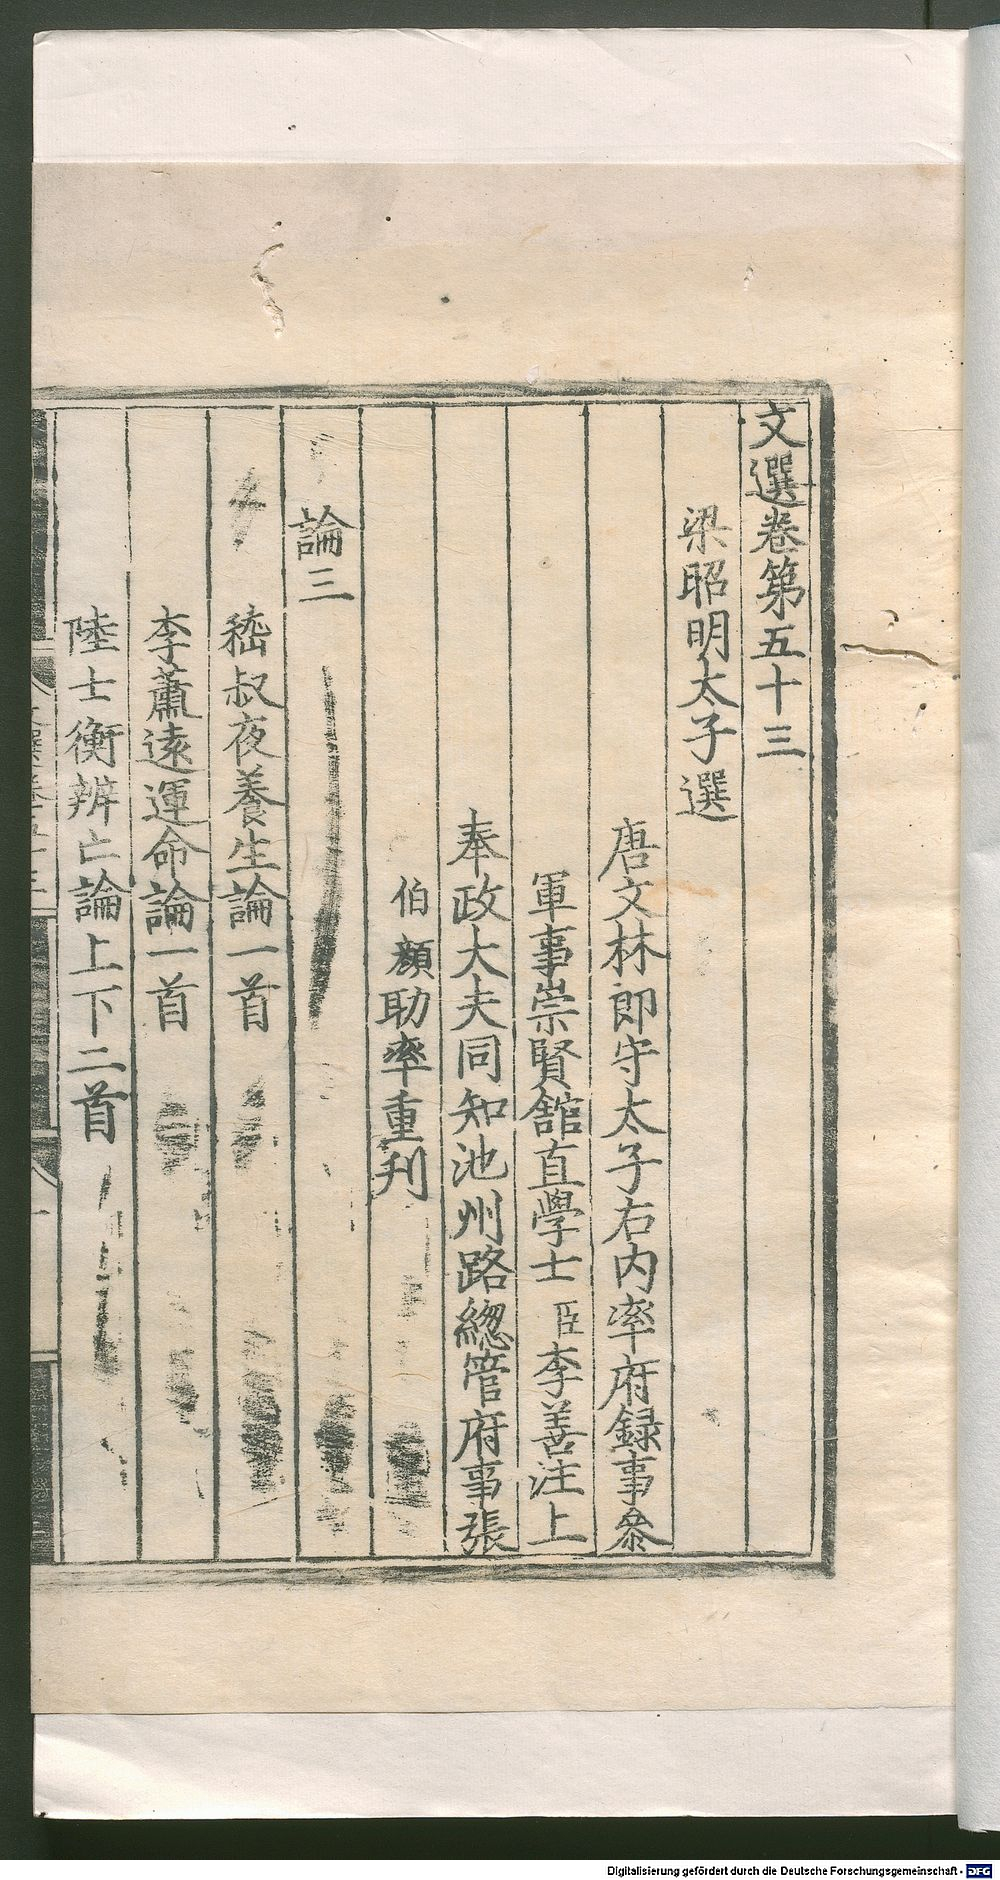 文選卷第五十三
梁昭明太子選
唐文林郎守太子右內率府錄事叅
軍事崇賢館直學士臣李善注上
奉政大夫同知池州路緫管府事張
伯顏助率重刋
論三
嵇叔夜養生論一首
李蕭遠運命論一首
陸士衡辨亡論上下二首
Digitalisierung gefördert durch die Deutsche Forschungsgemeinschaft - DFG